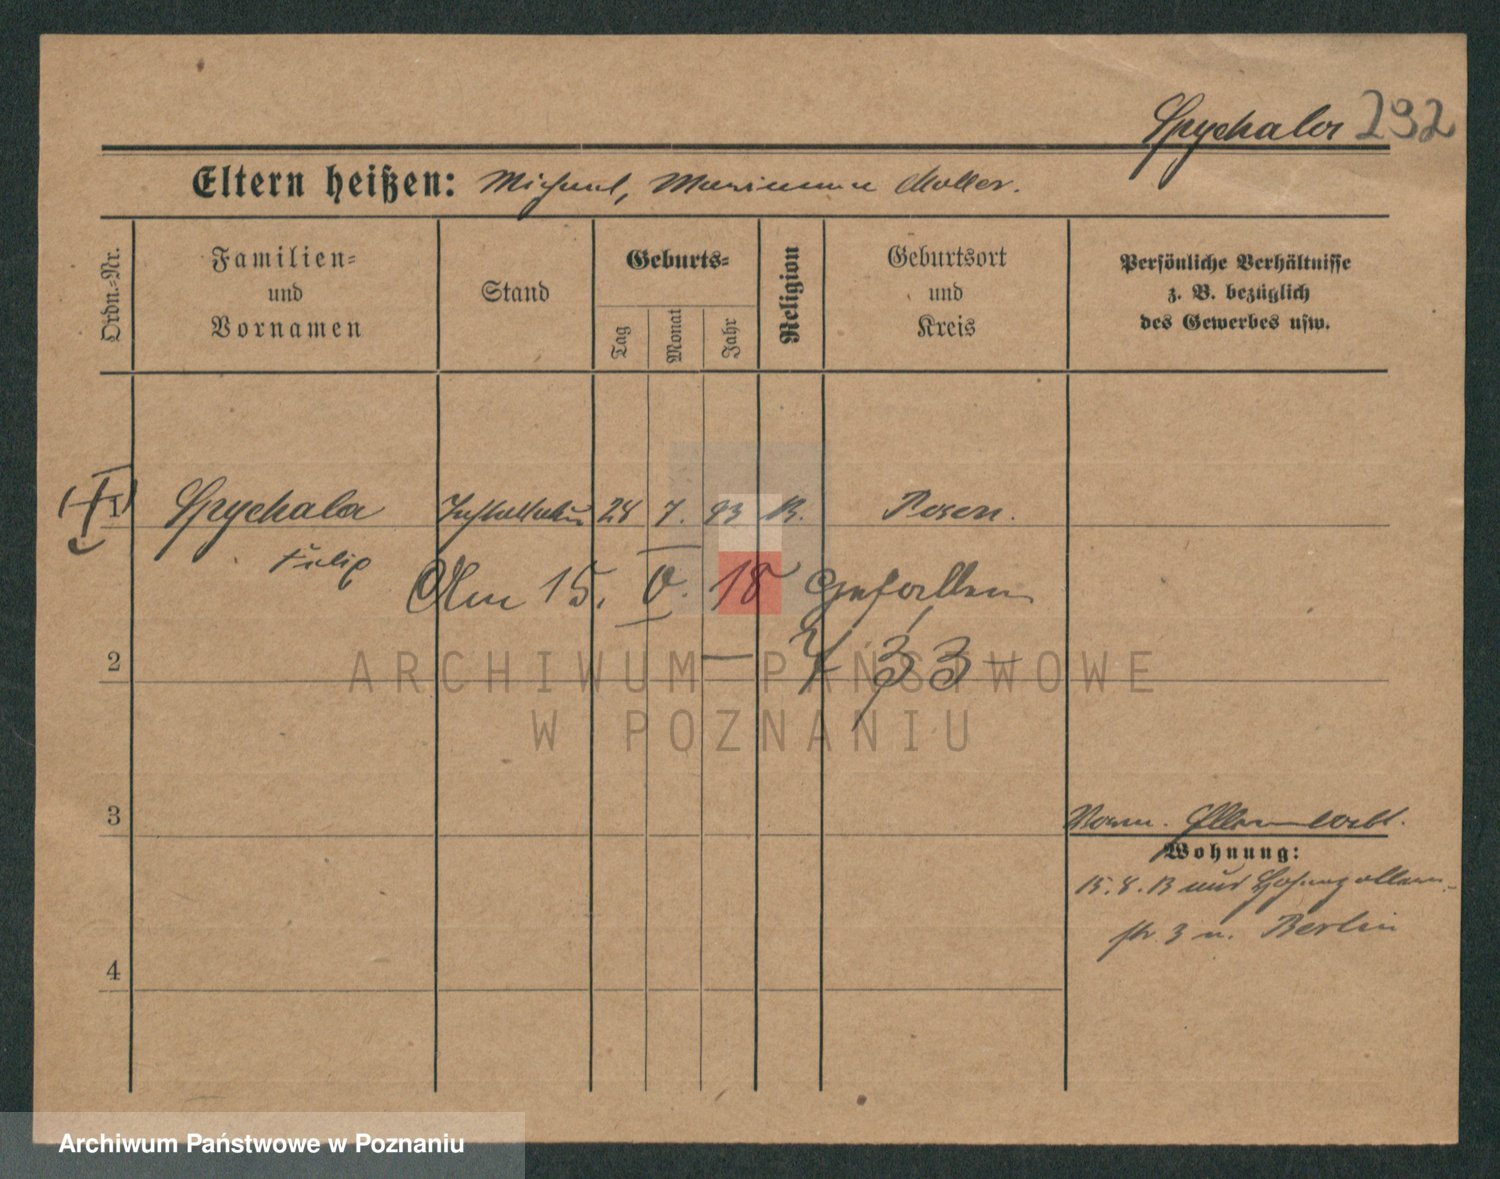 Spychala 292
Eltern heißen: Michael, Marianna Moller.
Ordn.-Nr.
Familien-
und
Vornamen
Stand
Geburts-
Tag
Monat
Jahr
Religion
Geburtsort
und
Kreis
Persönliche Verhältnisse
z. B. bezüglich
des Gewerbes usw.
1 Spychala 28 7. 93 K. Posen.
Am 15. V. 18 Gefallen
2
33
3
Wohnung:
15. 8. 13
str. 3 n. Berlin
4
ARCHIWUM PAŃSTWOWE
W POZNANIU
Archiwum Państwowe w Poznaniu